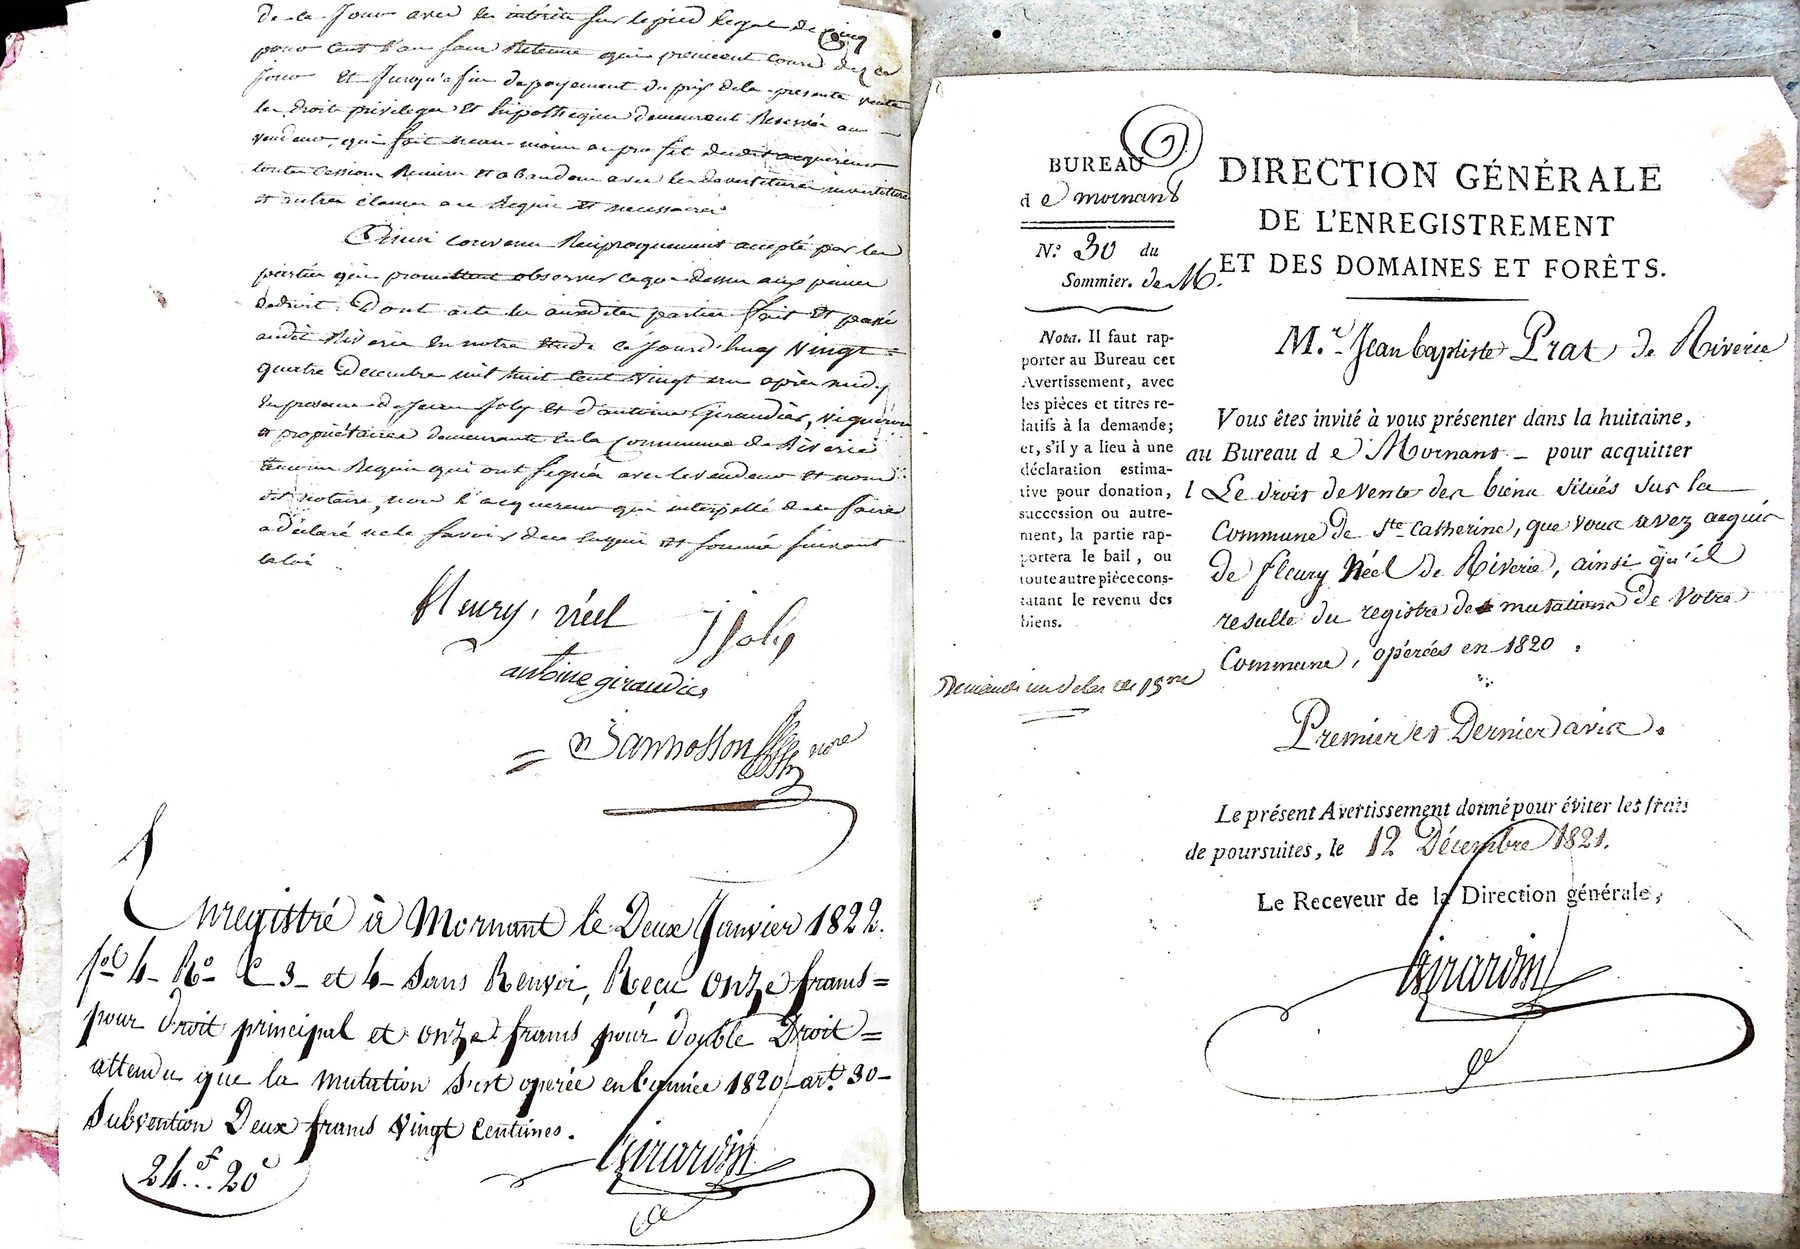 de ce Jour avec les intérêts sur le pied Legal de Cinq
pour Cent l'an sans Retenue qui prennent cours de ce
jour et Jusqu'a fin de payement du prix de la presente vente
les droits privileges et hipotheques demeurent Reservés au
vendeur, qui fait neanmoins au profit dudit acquereur
toutes cessions Remises et abandons avec les devestitures investitures
et autres clauses au Requis et necessaires
Ainsi convenu Reciproquement accepté par les
parties qui promettent observer ce que dessus aux peines
de droit. Dont acte les susdites parties fait et passé
audit Riverie en notre Etude ce Jourd'huy Vingt =
quatre Decembre mil huit cent vingt un apres midy
En presence de Jean Joly et d'antoine Giraudier, vigneron
et propriétaires demeurants en la Commune de Riverie
temoins Requis qui ont signés avec le vendeur et nous
dit notaire, non l'acquereur qui interpellé de ce faire
a déclaré ne le savoir de ce enquis et sommé suivant
la loi
fleury, néel
J Joly
antoine giraudier
= Sannosson nore
Enregistré à Mornant le Deux Janvier 1822.
fol 4 - Ro - C 3 - et 4 - Sans Renvoi, Reçu onze francs =
pour droit principal et onze francs pour double Droit =
attendu que la mutation s'est operée en l'année 1820 - art. 30 -
Subvention Deux francs vingt Centimes.
24 f... 20 c
Girardin
BUREAU
de mornant
N.º 30 du
Sommier. de M.
Nota. Il faut rap-
porter au Bureau cet
Avertissement, avec
les pièces et titres re-
latifs à la demande;
et, s'il y a lieu à une
déclaration estima-
tive pour donation,
succession ou autre-
ment, la partie rap-
portera le bail, ou
toute autre pièce cons-
tatant le revenu des
biens.
DIRECTION GÉNÉRALE
DE L'ENREGISTREMENT
ET DES DOMAINES ET FORÊTS.
M.r Jean baptiste Prat de Riverie
Vous êtes invité à vous présenter dans la huitaine,
au Bureau de Mornant - pour acquitter
l Le droit de vente des biens situés sur la
Commune de Ste Catherine, que vous avez acquis
de fleury Néel de Riverie, ainsi qu'il
resulte du registre des mutations de Votre
Commune, opérées en 1820.
Premier et Dernier avis.
Le présent Avertissement donné pour éviter les frais
de poursuites, le 12 Décembre 1821.
Le Receveur de la Direction générale,
Girardin